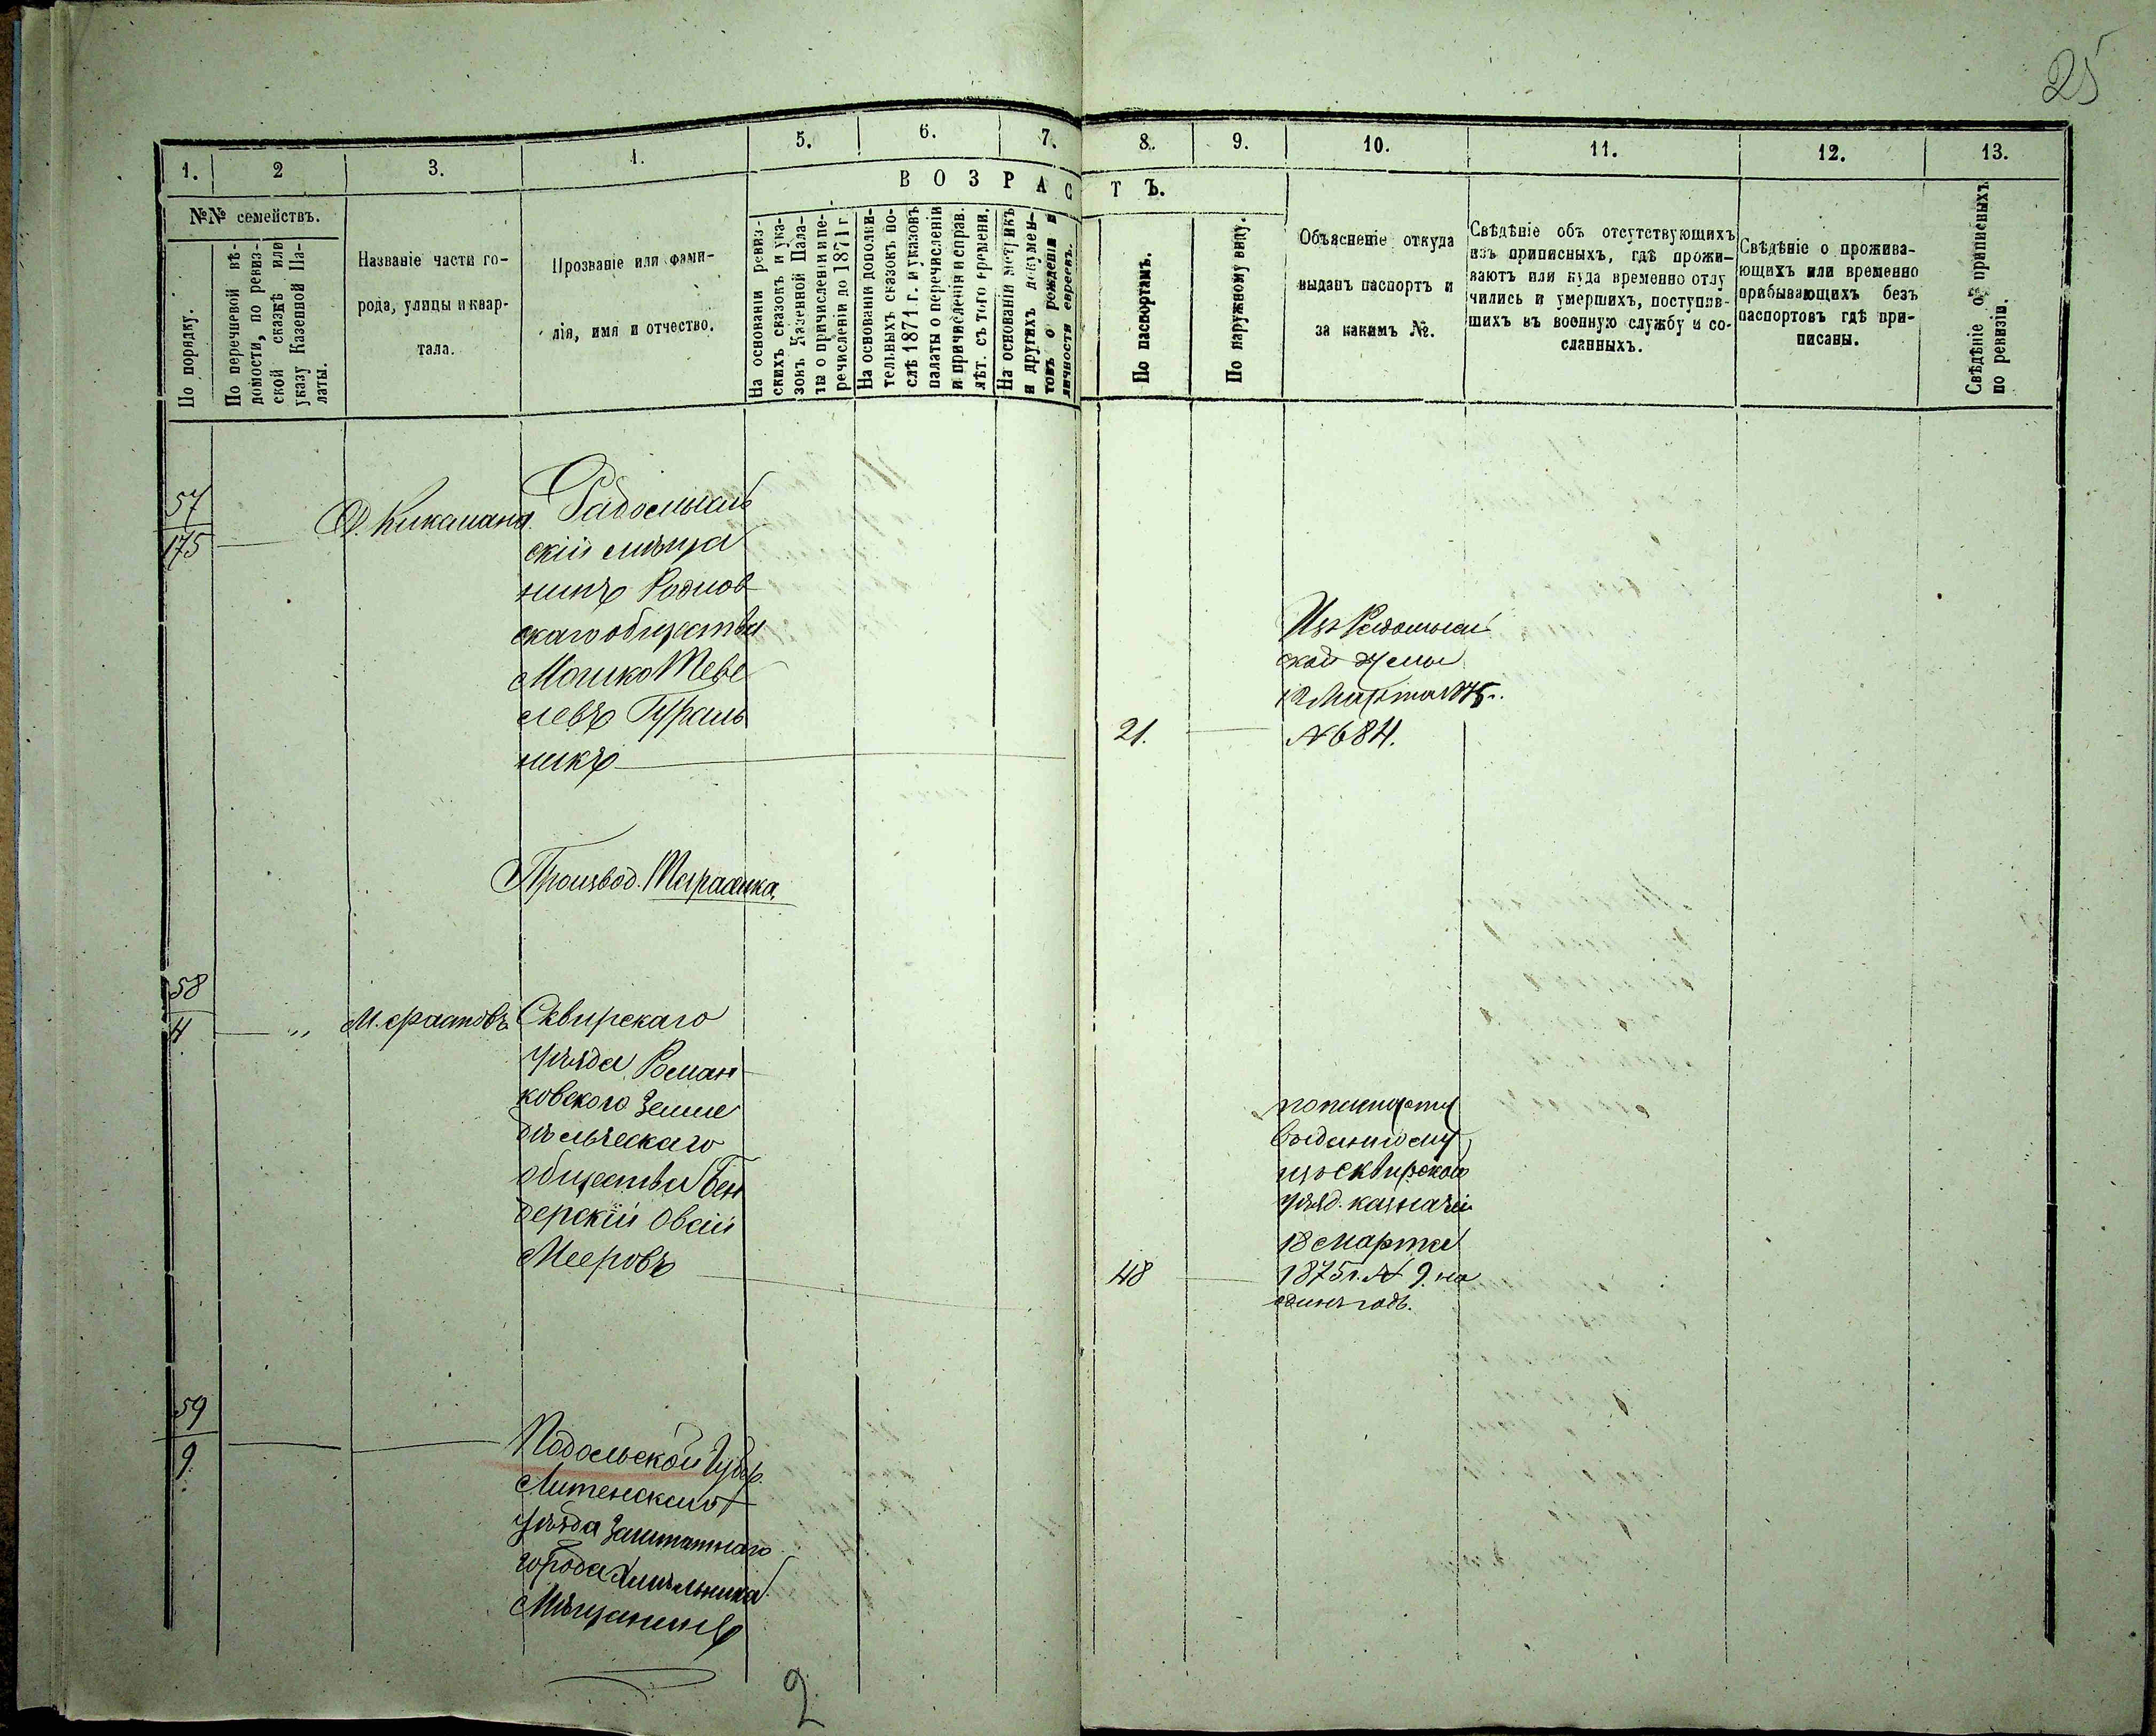 25
1. 2 3. 4. 5. 6. 7. 8. 9. 10. 11. 12. 13.
ВОЗРАСТЪ.
№№ семействъ.
По порядку.
По перечневой вѣ-
домости, по ревиз-
ской сказкѣ или
указу Казенной Па-
латы.
Названіе части го-
рода, улицы и квар-
тала.
Прозваніе или фами-
лія, имя и отчество.
На основаніи ревиз-
скихъ сказокъ и ука-
зовъ Казенной Пала-
ты о причисленіи и пе-
речисленіи до 1871 г.
На основаніи дополни-
тельныхъ сказокъ по-
слѣ 1871 г. и указовъ
палаты о перечисленіи
и причисленіи и справ.
лѣт. съ того времени.
На основаніи метрикъ
и другихъ докумен-
товъ о рожденіи и
личности евреевъ.
По паспортамъ.
По наружному виду.
Объясненіе откуда
выданъ паспортъ и
за какимъ №.
Свѣдѣніе объ отсутствующихъ
изъ приписныхъ, гдѣ прожи-
ваютъ или куда временно отлу
чились и умершихъ, поступив-
шихъ въ военную службу и со-
сланныхъ.
Свѣдѣніе о прожива-
ющихъ или временно
прибывающихъ безъ
паспортовъ гдѣ при-
писаны.
Свѣдѣніе о приписныхъ
по ревизіи.
57
175
Радомысль
скій мѣща
нинъ
скаго общества
Мошко Теве
левъ Гураль
никъ
21.
Изъ Радомысль
ской Думы
12 Марта 1875.
№ 684.
Производ. Тарасенка.
58
4
"
М. Фастовъ
Сквирскаго
уѣзда Роман
ковского Земле
дѣльческаго
общества Бен
дерскій Овсій
Мееровъ
48
по паспорту
выданному
изъ Сквирской
уѣзд. казначей
18 Марта
1875 г. № 9. на
одинъ годъ.
59
9
Подольской Губер.
Литенскаго
уѣзда Заштатнаго
города Хмѣльника
Мѣщанинъ
2